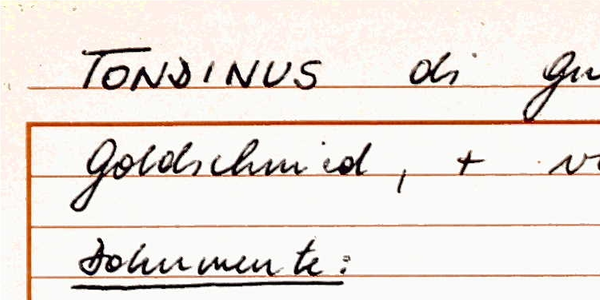 TONDINUS di
Goldschmied, +
Dokumente: